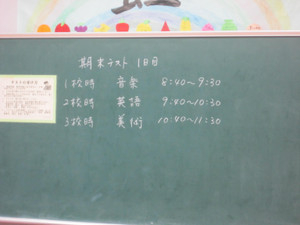 期末テスト 1日目
1校時 音楽 8:40〜9:30
2校時 英語 9:40〜10:30
3校時 美術 10:40〜11:30